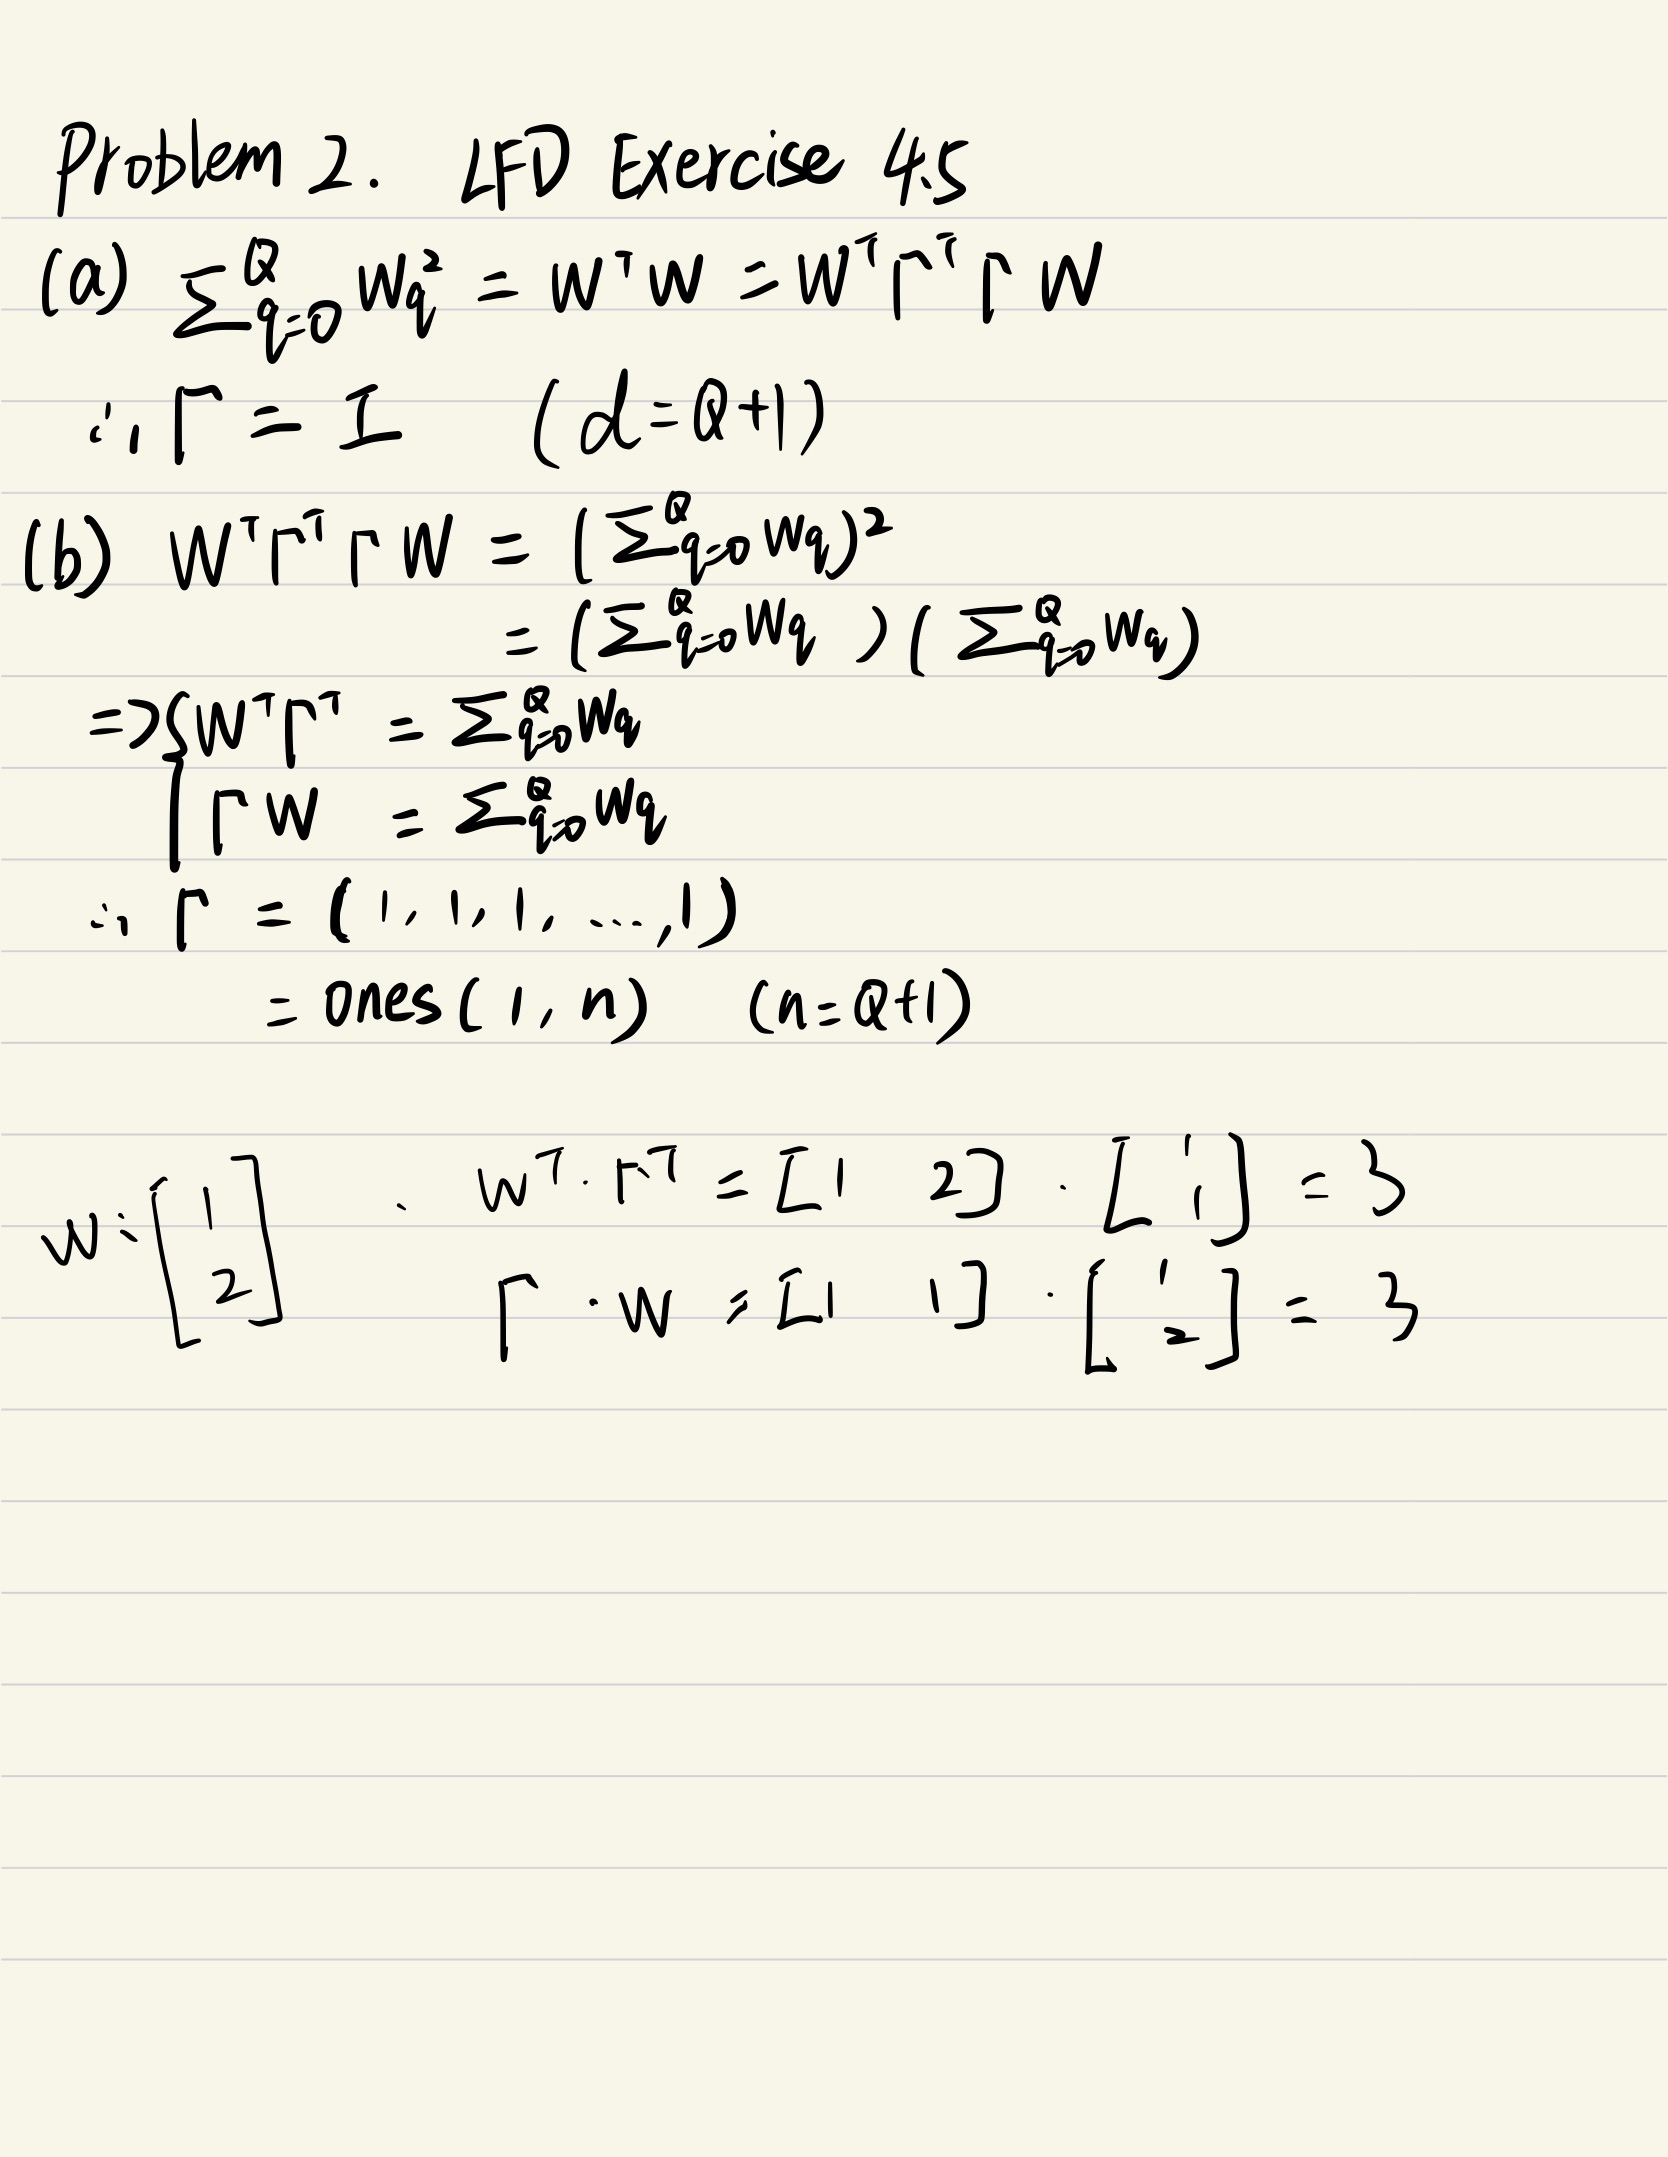 Problem 2. LFD Exercise 4.5
(a) ∑_{q=0}^{Q} W_q^2 = W^T W = W^T Γ^T Γ W
∴ Γ = I (d=Q+1)
(b) W^T Γ^T Γ W = (∑_{q=0}^{Q} W_q)^2
= (∑_{q=0}^{Q} W_q)(∑_{q=0}^{Q} W_q)
=> { W^T Γ^T = ∑_{q=0}^{Q} W_q
Γ W = ∑_{q=0}^{Q} W_q
∴ Γ = (1, 1, 1, ..., 1)
= ones(1, n) (n=Q+1)
W: [1 2] . W^T · Γ^T = [1 2] · [1 1] = 3
Γ · W = [1 1] · [1 2] = 3